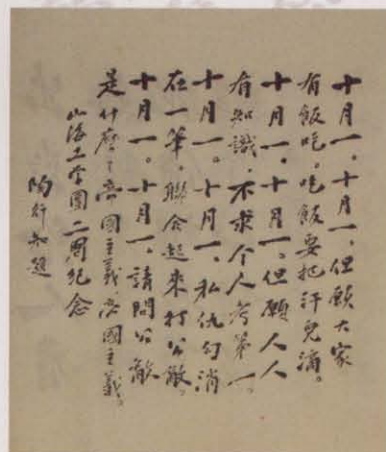 十月一。十月一。但願大家
有飯吃。吃飯要把汗兒滴。
十月一。十月一。但願人人
有知識。不求个人考第一。
十月一。十月一。私仇勾消
在一筆。聯合起來打公敵。
十月一。十月一。請問公敵
是什麼？帝國主義。帝國主義。
山海工学團二周纪念
陶行知題